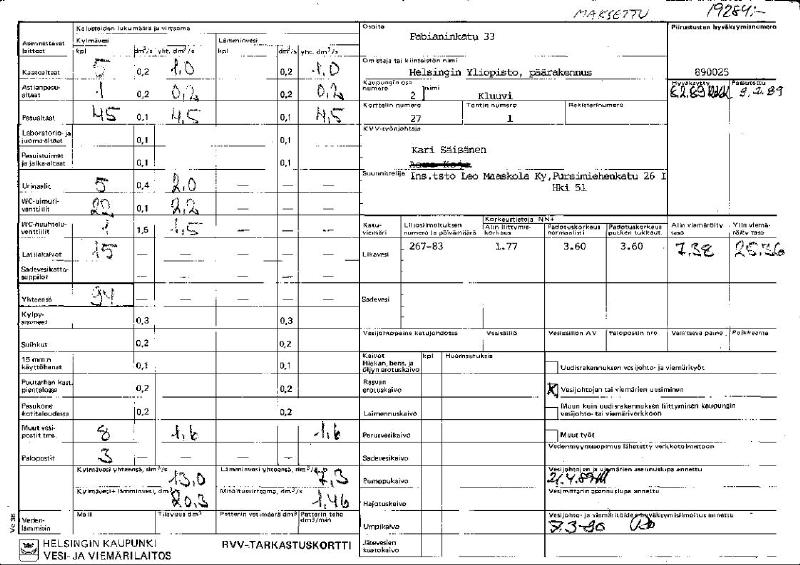 MAKSETTU 19284:-
Kalusteiden lukumäärä ja virtaama
Asennettavat laitteet
Kylmävesi
kpl dm³/s yht. dm³/s
Lämminvesi
kpl dm³/s yht. dm³/s
Kaatoaltaat 5 0,2 1,0 0,2 1,0
Astianpesualtaat 1 0,2 0,2 0,2 0,2
Pesualtaat 45 0,1 4,5 0,1 4,5
Laboratorio- ja juomaaltaat 0,1 0,1
Pesuistuimet ja jalka-altaat 0,1 0,1
Urinaalit 5 0,4 2,0 — — —
WC-uimuriventtiilit 22 0,1 2,2 — — —
WC-huuhteluventtiilit 1 1,5 1,5 — — —
Lattiakaivot 15 — — — — —
Sadevesikattosuppilot — — — — —
Yhteensä 94 — — — — —
Kylpyammeet 0,3 0,3
Suihkut 0,2 0,2
15 mm:n käyttöhanat 0,1 0,1
Puutarhan kast. pientalossa 0,2 0,2
Pesukone kotitaloudessa 0,2 0,2
Muut vesipostit tms. 8 — 1,6 — 1,6
Palopostit 3 — — — —
Kylmävesi yhteensä, dm³/s 13,0
Lämminvesi yhteensä, dm³/s 7,3
Kylmävesi+ lämminvesi, dm³/s 20,3
Mitoitusvirtaama, dm³/s 1,46
Vedenlämmitin
Malli
Tilavuus dm³
Patterin vesimäärä dm³
Patterin teho dm³/min
Vv 38
HELSINGIN KAUPUNKI
VESI- JA VIEMÄRILAITOS
RVV-TARKASTUSKORTTI
Osoite
Fabianinkatu 33
Piirustusten hyväksymisnumero
890025
Omistaja tai kiinteistön nimi
Helsingin Yliopisto, päärakennus
Hyväksytty 6.2.89
Palautettu 9.2.89
Kaupungin osa numero 2
nimi Kluuvi
Korttelin numero 27
Tontin numero 1
Rekisterinumero
KVV-työnjohtaja
Kari Säisänen
Suunnittelija Ins.tsto Leo Maaskola Ky, Pursimiehenkatu 26 I
Hki 51
Katuviemäri
Liitosilmoituksen numero ja päivämäärä
Korkeustietoja NN+
Alin liittymiskorkeus
Padotuskorkeus normaalisti
Padotuskorkeus putken tukkeut.
Alin viemäröity taso
Ylin viemäröity taso
Likavesi 267-83 1.77 3.60 3.60 7.38 25.36
Sadevesi
Vesijohtopaine katujohdossa
Vesisäiliö
Vesisäiliön AV
Palopostin nro
Vallitseva paine
Paikkeama
Kaivot kpl Huomautuksia
Hiekan, bens. ja öljyn erotuskaivo
Rasvan erotuskaivo
Laimennuskaivo
Perusvesikaivo
Sadevesikaivo
Pumppukaivo
Hajotuskaivo
Umpikaivo
Jäteveden kuotokaivo
Uudisrakennuksen vesijohto- ja viemärityöt
X Vesijohtojen tai viemärien uusiminen
Muun kuin uudisrakennuksen liittyminen kaupungin vesijohto- tai viemäriverkkoon
Muut työt
Vedenmyyntisopimus lähetetty verkkotoimistoon
Vesijohtojen ja viemärien asennuslupa annettu
21.4.89
Vesimittarin asennuslupa annettu
Vesijohto- ja viemäritöiden hyväksymisilmoitus annettu
7.3-90